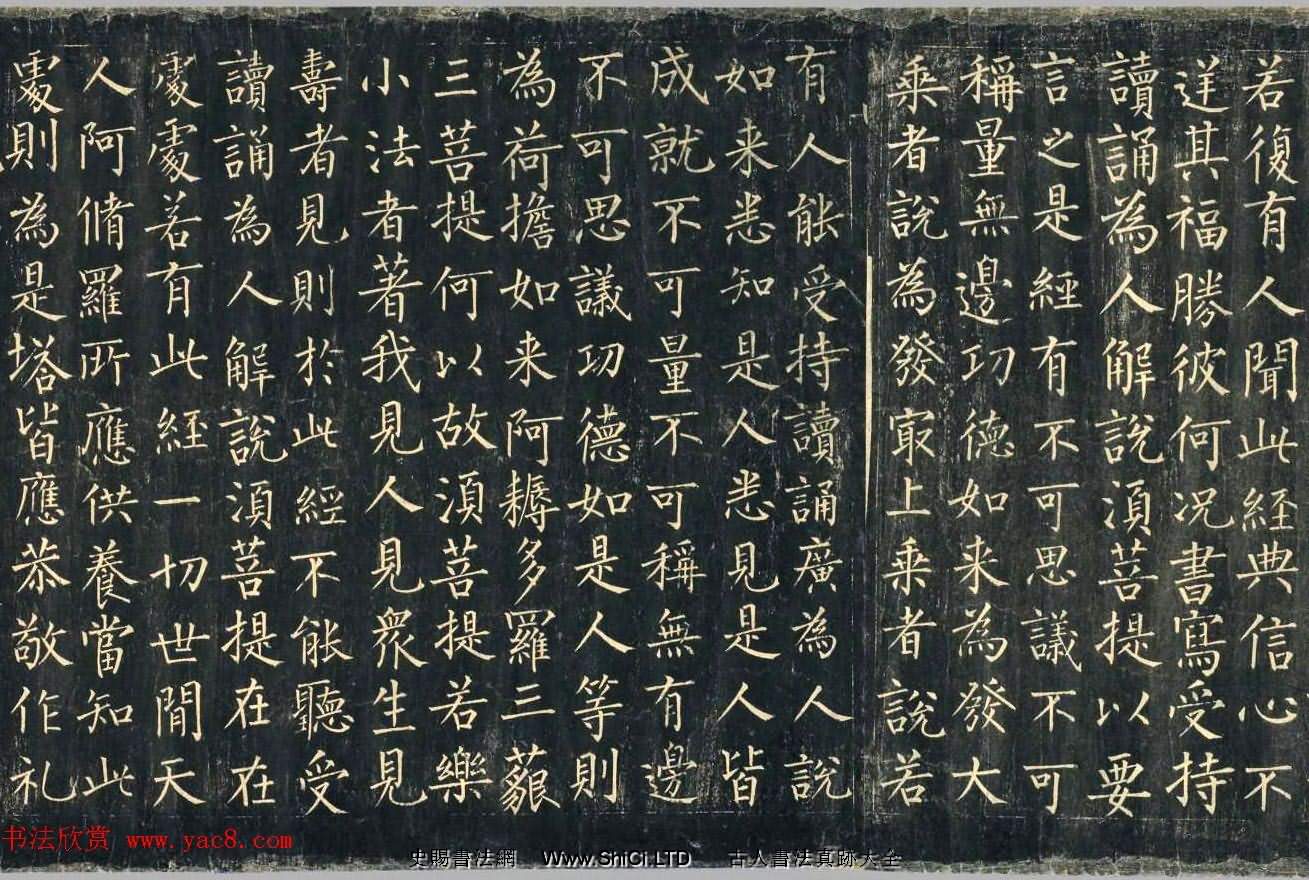 若復有人聞此經典信心不
逆其福勝彼何况書寫受持
讀誦為人解說湏菩提以要
言之是經有不可思議不可
稱量無邊功德如来為發大
乘者說為發冣上乘者說若
有人能受持讀誦廣為人說
如来悉知是人悉見是人皆
成就不可量不可稱無有邊
不可思議功德如是人等則
為荷擔如来阿耨多羅三藐
三菩提何以故湏菩提若樂
小法者著我見人見衆生見
壽者見則於此經不能聽受
讀誦為人解說湏菩提在在
處處若有此經一切世間天
人阿脩羅所應供養當知此
處則為是塔皆應恭敬作礼
书法欣赏 www.yac8.com
史賜書法網 Www.ShiCi.LTD 古人書法真跡大全